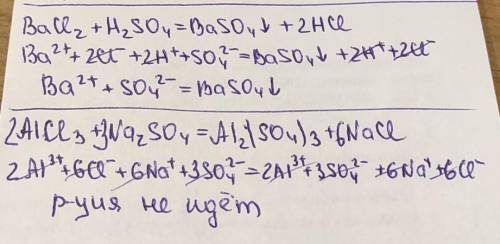 BaCl₂ + H₂SO₄ = BaSO₄↓ + 2HCl
Ba²⁺ + 2Cl⁻ + 2H⁺ + SO₄²⁻ = BaSO₄↓ + 2H⁺ + 2Cl⁻
Ba²⁺ + SO₄²⁻ = BaSO₄↓
2AlCl₃ + 3Na₂SO₄ = Al₂(SO₄)₃ + 6NaCl
2Al³⁺ + 6Cl⁻ + 6Na⁺ + 3SO₄²⁻ = 2Al³⁺ + 3SO₄²⁻ + 6Na⁺ + 6Cl⁻
р-ция не идёт